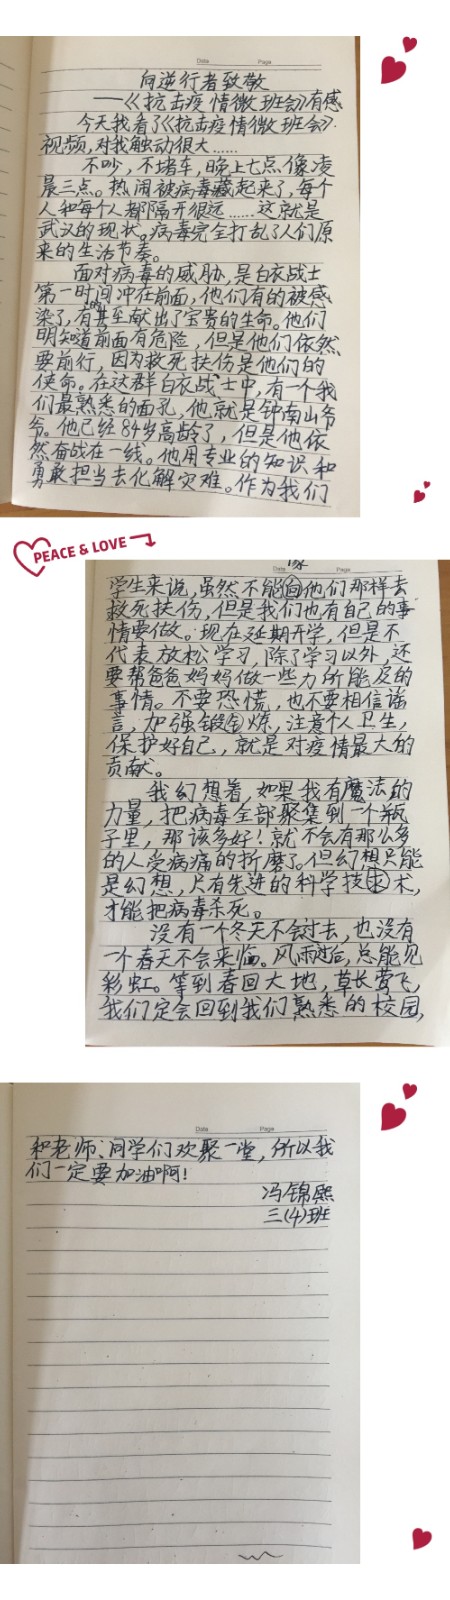 Date Page
向逆行者致敬
——《抗击疫情微班会》有感
今天我看了《抗击疫情微班会》
视频,对我触动很大……
不吵,不堵车,晚上七点像凌
晨三点。热闹被病毒藏起来了,每个
人和每个人都隔开很远……这就是
武汉的现状。病毒完全打乱了人们原
来的生活节奏。
面对病毒的威胁,是白衣战士
第一时间冲在前面,他们有的被感
染了,有的甚至献出了宝贵的生命。他们
明知道前面有危险,但是他们依然
要前行,因为救死扶伤是他们的
使命。在这群白衣战士中,有一个我
们最熟悉的面孔,他就是钟南山爷
爷。他已经84岁高龄了,但是他依
然奋战在一线。他用专业的知识和
勇敢担当去化解灾难。作为我们
PEACE & LOVE
Date Page
像
学生来说,虽然不能向他们那样去
救死扶伤,但是我们也有自己的事
情要做。现在延期开学,但是不
代表放松学习,除了学习以外,还
要帮爸爸妈妈做一些力所能及的
事情。不要恐慌,也不要相信谣
言,加强锻炼,注意个人卫生,
保护好自己,就是对疫情最大的
贡献。
我幻想着,如果我有魔法的
力量,把病毒全部聚集到一个瓶
子里,那该多好!就不会有那么多
的人受病痛的折磨了。但幻想只能
是幻想,只有先进的科学技术,
才能把病毒杀死。
没有一个冬天不会过去,也没有
一个春天不会来临。风雨过后,总能见
彩虹。等到春回大地,草长莺飞,
我们定会回到我们熟悉的校园,
Date Page
和老师、同学们欢聚一堂,所以我
们一定要加油啊!
冯锦熙
三(4)班